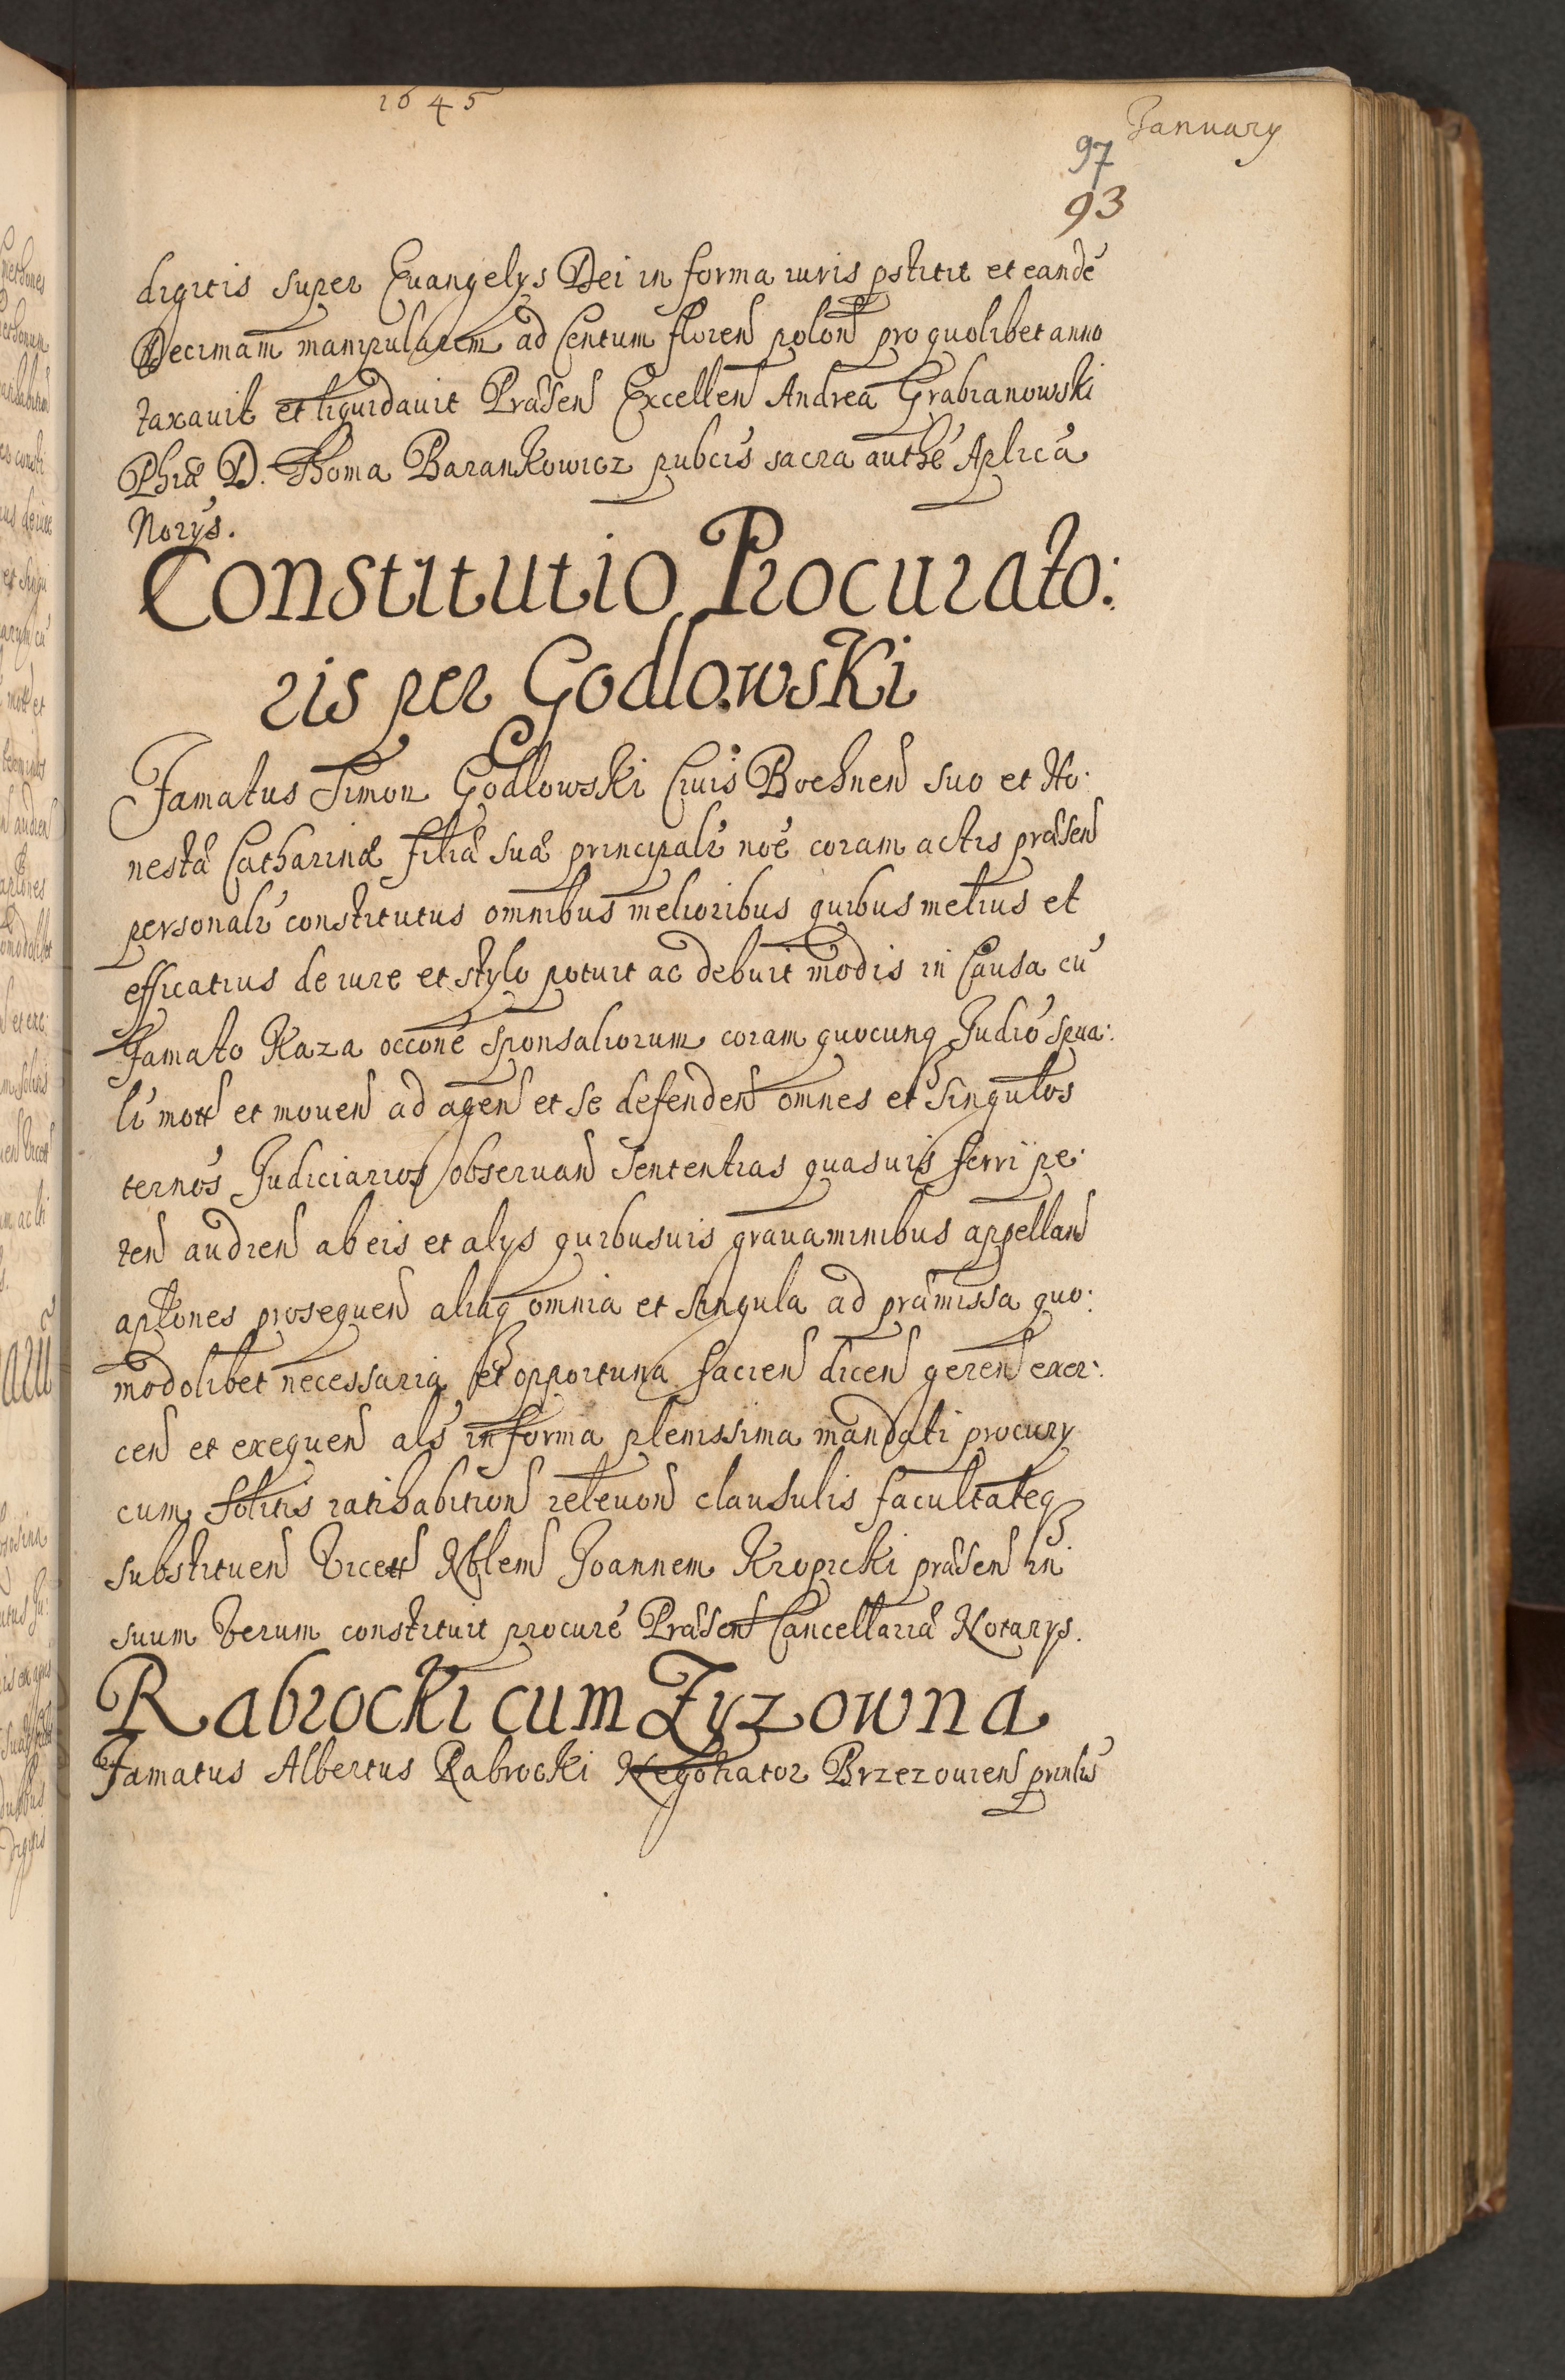 1645
January
97
93
digitis super Euangelys Dei in forma iuris pstitit et eandé
Decimam manipularem ad Centum floren polon pro quolibet anno
taxavit et liquidavit Præsen Excellen Andrea Grabianowski
Phiæ D. Thoma Barankowicz pubcis sacra authé Aplicá
Norys.
Constitutio Procurato:
ris per Godlowski
Famatus Simon Godlowski Civis Bochnen suo et Ho:
nestæ Catharinæ filiæ suæ principalr noé coram actis præsen
personalr constitutus omnibus melioribus quibus melius et
efficatius de iure et stylo potuit ac debuit modis in Causa cú
Famato Kaza occoné sponsaliorum coram quocunq Judió spua:
li mott et mouen ad agen et se defenden omnes et singulos
ternós Judiciarios obseruan Sententias quasuis ferri pe:
ten audien ab eis et alys quibusuis grauaminibus appellan
aplones prosequen aliaq omnia et singula ad præmissa quo:
modolibet necessaria et opportuna facien dicen geren exer:
cen et exequen als in forma plenissima mandati procury
cum solitis ratihabition releuon clausulis facultateq
substituen Vicett Nblem Joannem Kropicki præsen in
suum Verum constituit procuré Præsen Cancellariæ Notarys.
Rabrocki cum Zyzowna
Famatus Albertus Rabrocki Negotiator Brzezouien prinlis